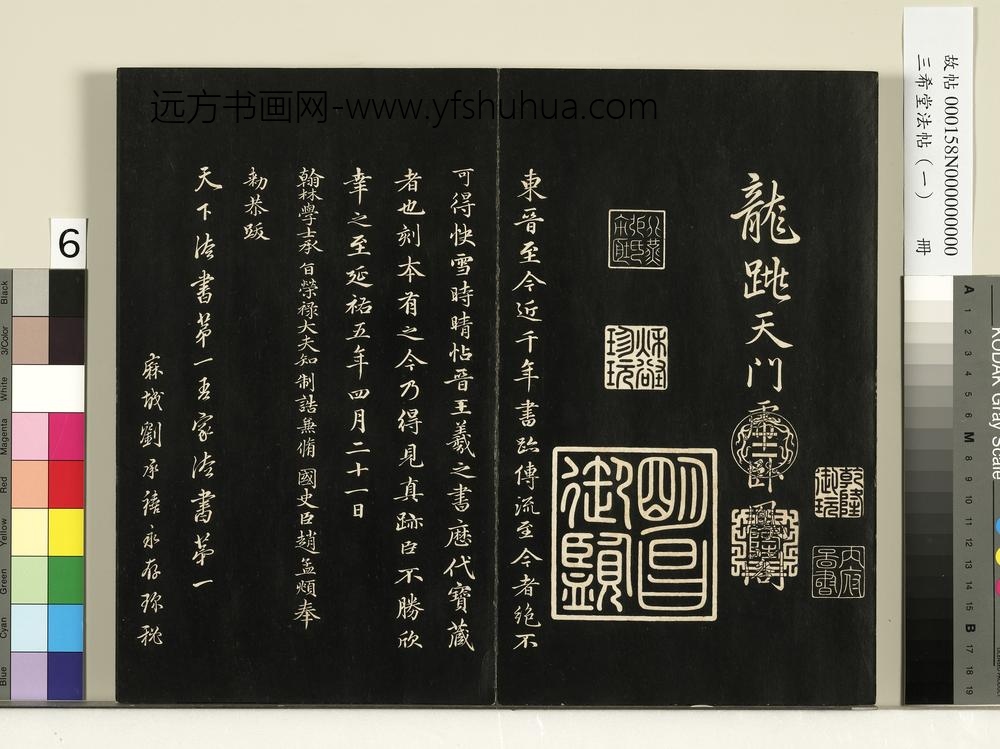 远方书画网-www.yfshuhua.com
故帖 000158N000000000
三希堂法帖(一) 册
龍跳天門虎卧鳳閣
乾隆御玩
明昌御覽
東晉至今近千年書跡傳流至今者絶不
可得快雪時晴帖晉王羲之書歷代寶藏
者也刻本有之今乃得見真跡臣不勝欣
幸之至延祐五年四月二十一日
翰林學士承旨榮禄大夫知制誥兼脩國史臣趙孟頫奉
勑恭跋
天下法書第一吾家法書第一
麻城劉承禧永存珍秘
6
Black
3/Color
White
Magenta
Red
Yellow
Green
Cyan
Blue
KODAK Gray Scale
A 1 2 3 4 5 6 M 8 9 10 11 12 13 14 15 B 17 18 19